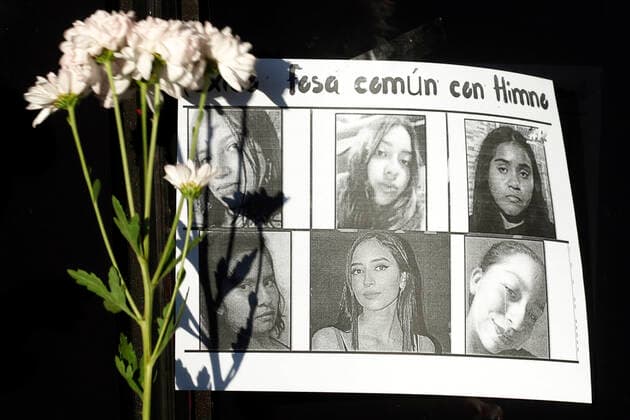 Fosa común con Himno